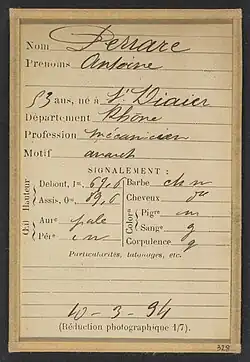 Nom Perrare
Prenoms Antoine
53 ans, né à St Didier
Département Rhône
Profession mécanicien
Motif anarch
SIGNALEMENT :
Hauteur
Debout, 1m 67,6 Barbe ch m
Assis, 0m 89,6 Cheveux
Œil
Aure pale
Pére m
Color
Pigre m
Sang g
Corpulence g
Particularités, tatouages, etc.
10-3-94
(Réduction photographique 1/7).
328